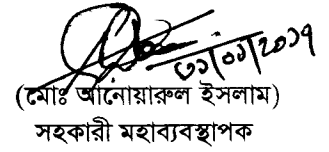 ৩১/০১/২০১৭
(মোঃ আনোয়ারুল ইসলাম)
সহকারী মহাব্যবস্থাপক